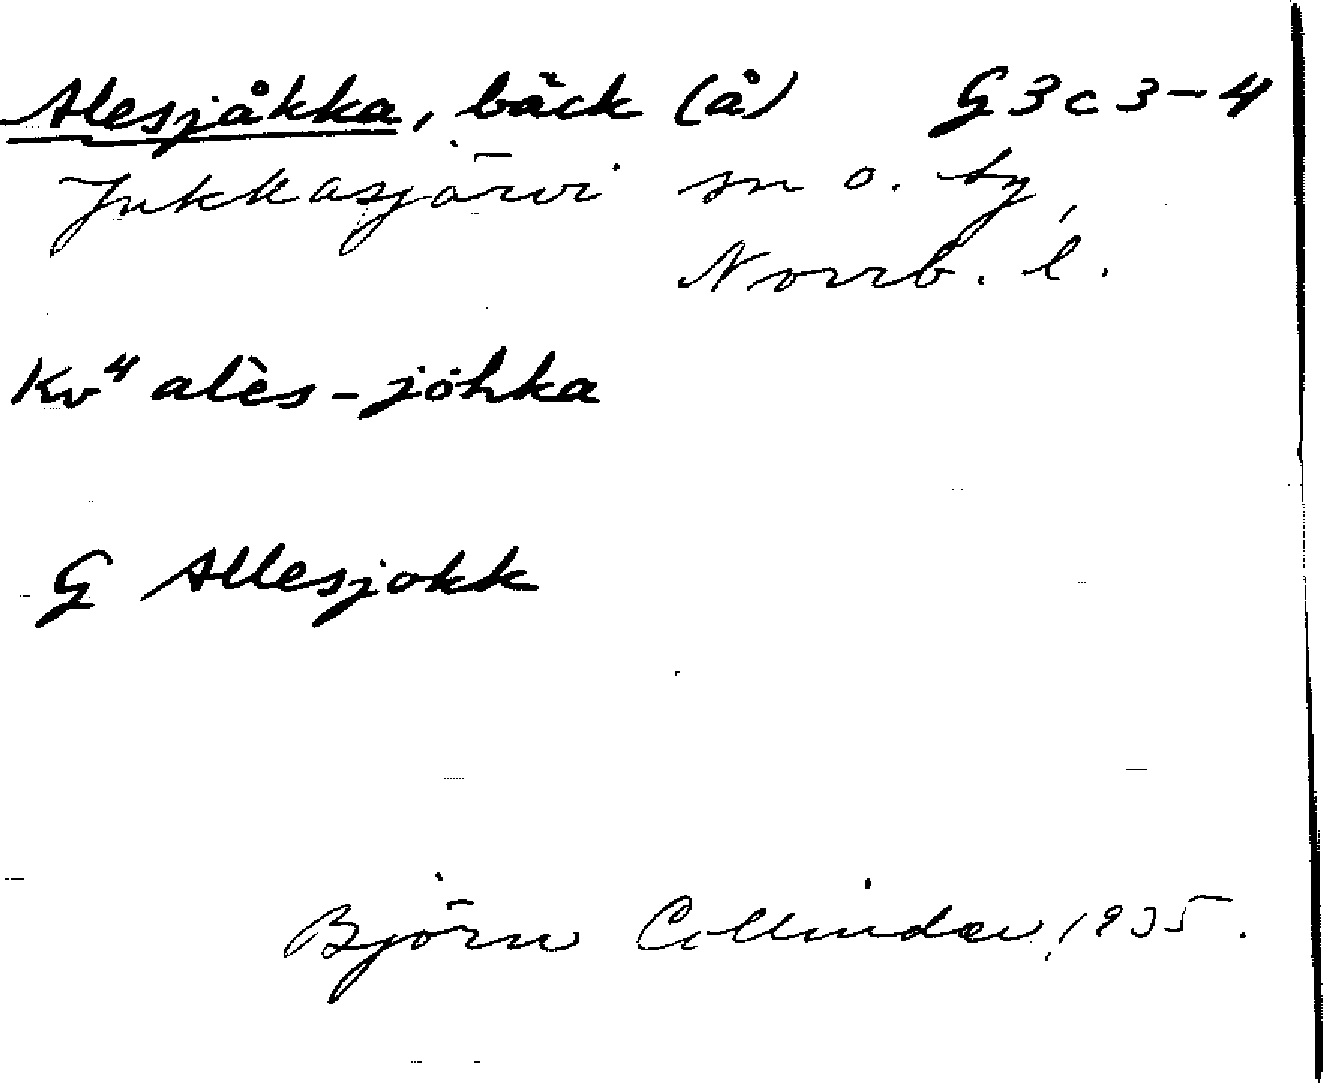 Alesjåkka, bäck (å) G 3 c 3-4
Jukkasjärvi sn o. by,
Norrb. l.
Kv⁴ alès-jòhka
G Allesjokk
Björn Collinder, 1935.